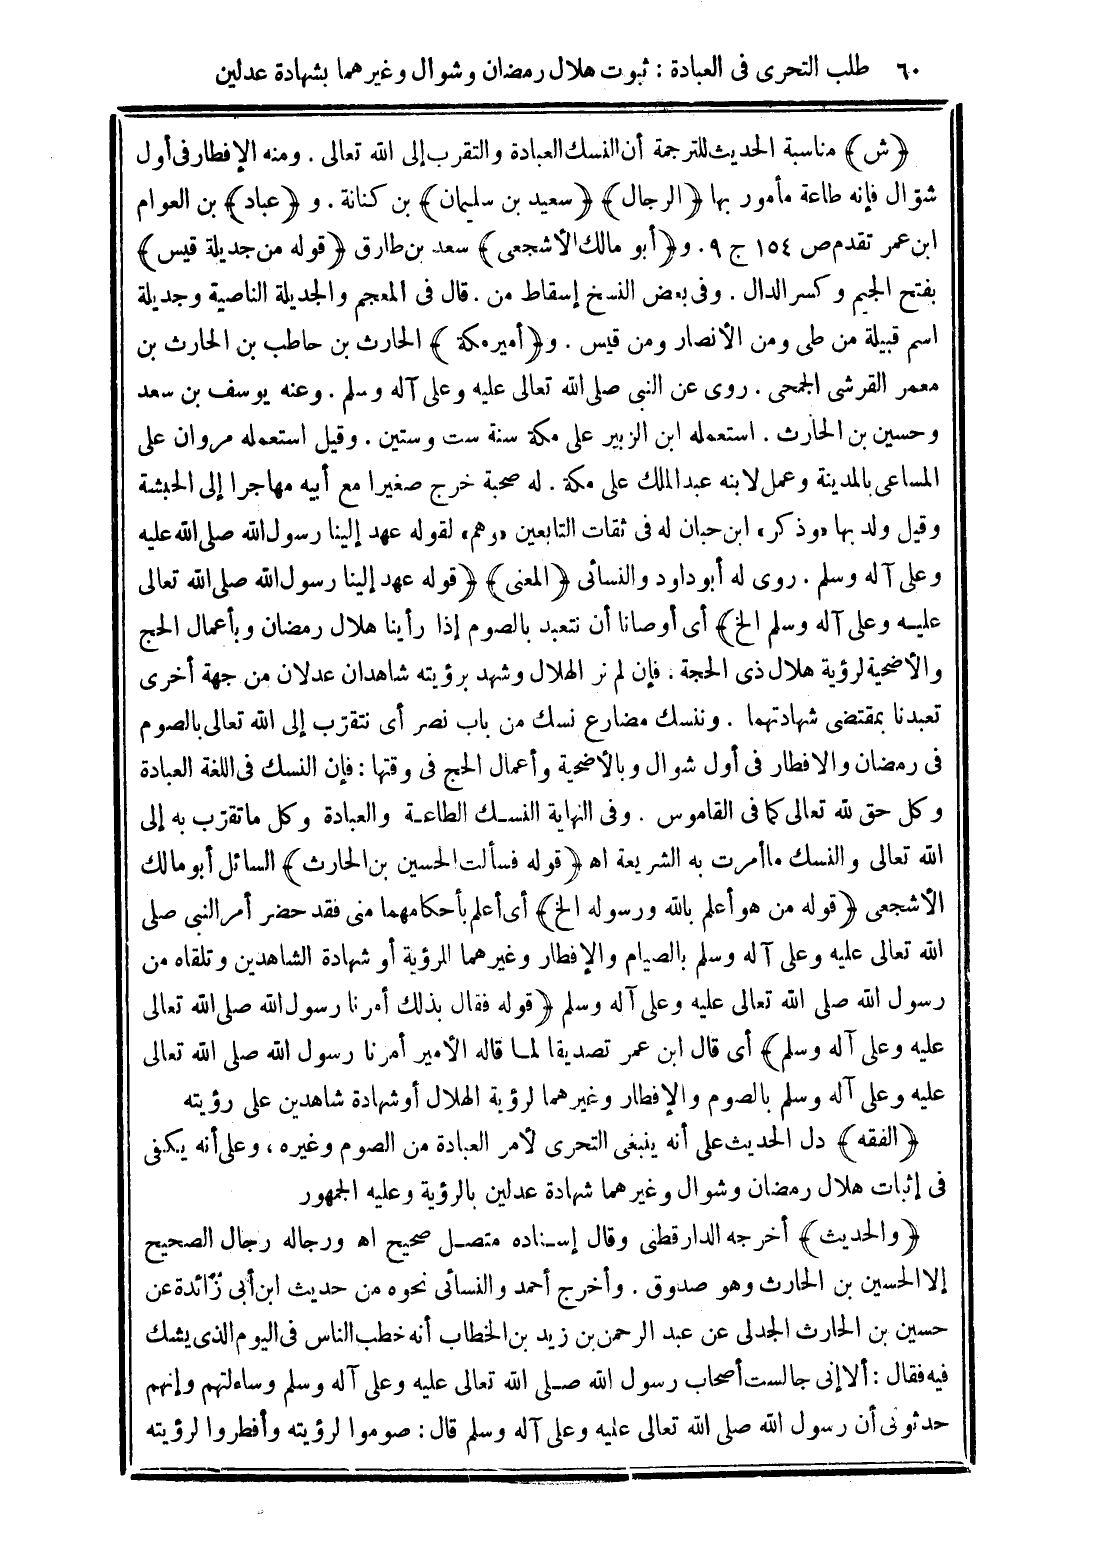 ٦٠ طلب التحرى فى العبادة : ثبوت هلال رمضان وشوال وغيرهما بشهادة عدلين
﴿ش﴾ مناسبة الحديث للترجمة أن النسك العبادة والتقرب إلى الله تعالى . ومنه الإفطار فى أول
شوّال فإنه طاعة مأمور بها ﴿الرجال﴾ ﴿سعيد بن سليمان﴾ بن كنانة . و ﴿عباد﴾ بن العوام
ابن عمر تقدم ص ١٥٤ ج ٩ . و﴿أبو مالك الأشجعى﴾ سعد بن طارق ﴿قوله من جديلة قيس﴾
بفتح الجيم وكسر الدال . وفى بعض النسخ إسقاط من . قال فى المعجم والجديلة الناصية وجديلة
اسم قبيلة من طى ومن الأنصار ومن قيس . و﴿أمير مكة﴾ الحارث بن حاطب بن الحارث بن
معمر القرشى الجمحى . روى عن النبى صلى الله تعالى عليه وعلى آله وسلم . وعنه يوسف بن سعد
وحسين بن الحارث . استعمله ابن الزبير على مكة سنة ست وستين . وقيل استعمله مروان على
المساعى بالمدينة وعمل لابنه عبد الملك على مكة . له صحبة خرج صغيرا مع أبيه مهاجرا إلى الحبشة
وقيل ولد بها «وذكر» ابن حبان له فى ثقات التابعين «وهم» لقوله عهد إلينا رسول الله صلى الله عليه
وعلى آله وسلم . روى له أبو داود والنسائى ﴿المعنى﴾ ﴿قوله عهد إلينا رسول الله صلى الله تعالى
عليه وعلى آله وسلم الخ﴾ أى أوصانا أن نتعبد بالصوم إذا رأينا هلال رمضان وبأعمال الحج
والأضحية لرؤية هلال ذى الحجة . فإن لم نر الهلال وشهد برؤيته شاهدان عدلان من جهة أخرى
تعبدنا بمقتضى شهادتهما . وننسك مضارع نسك من باب نصر أى نتقرّب إلى الله تعالى بالصوم
فى رمضان والافطار فى أول شوال وبالأضحية وأعمال الحج فى وقتها : فإن النسك فى اللغة العبادة
وكل حق لله تعالى كما فى القاموس . وفى النهاية النسك الطاعة والعبادة وكل ما تقرّب به إلى
الله تعالى والنسك ما أمرت به الشريعة اه ﴿قوله فسألت الحسين بن الحارث﴾ السائل أبو مالك
الأشجعى ﴿قوله من هو أعلم بالله ورسوله الخ﴾ أى أعلم بأحكامهما منى فقد حضر أمر النبى صلى
الله تعالى عليه وعلى آله وسلم بالصيام والإفطار وغيرهما الرؤية أو شهادة الشاهدين وتلقاه من
رسول الله صلى الله تعالى عليه وعلى آله وسلم ﴿قوله فقال بذلك أمرنا رسول الله صلى الله تعالى
عليه وعلى آله وسلم﴾ أى قال ابن عمر تصديقا لما قاله الأمير أمرنا رسول الله صلى الله تعالى
عليه وعلى آله وسلم بالصوم والإفطار وغيرهما لرؤية الهلال أو شهادة شاهدين على رؤيته
﴿الفقه﴾ دل الحديث على أنه ينبغى التحرى لأمر العبادة من الصوم وغيره ، وعلى أنه يكفى
فى إثبات هلال رمضان وشوال وغيرهما شهادة عدلين بالرؤية وعليه الجمهور
﴿والحديث﴾ أخرجه الدارقطنى وقال إسناده متصل صحيح اه ورجاله رجال الصحيح
إلا الحسين بن الحارث وهو صدوق . وأخرج أحمد والنسائى نحوه من حديث ابن أبى زائدة عن
حسين بن الحارث الجدلى عن عبد الرحمن بن زيد بن الخطاب أنه خطب الناس فى اليوم الذى يشك
فيه فقال : ألا إنى جالست أصحاب رسول الله صلى الله تعالى عليه وعلى آله وسلم وساءلتهم وإنهم
حدثونى أن رسول الله صلى الله تعالى عليه وعلى آله وسلم قال : صوموا لرؤيته وأفطروا لرؤيته